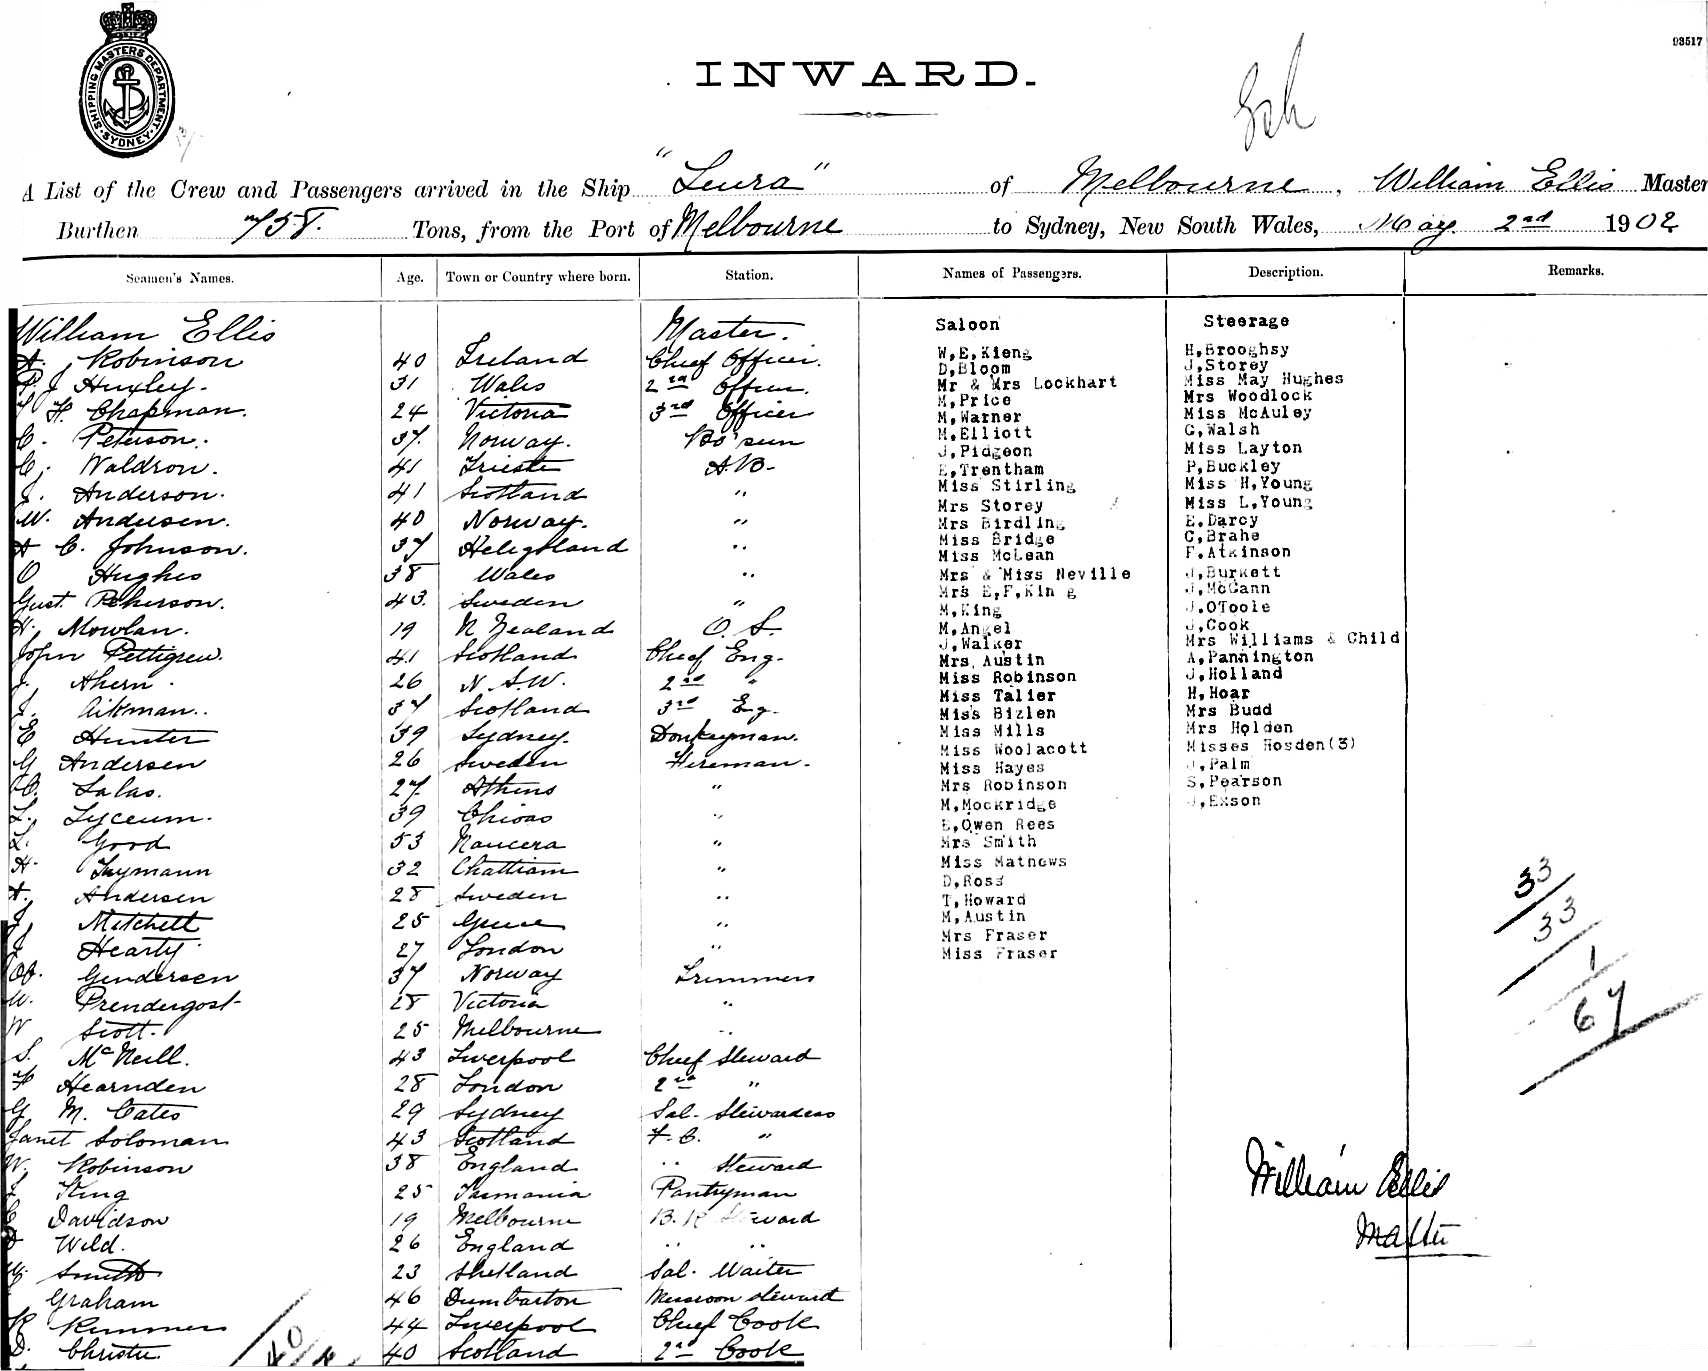 SHIPPING MASTERS DEPARTMENT
SYDNEY
93517
INWARD.
A List of the Crew and Passengers arrived in the Ship "Leura" of Melbourne, William Ellis Master
Burthen 758. Tons, from the Port of Melbourne to Sydney, New South Wales, May. 2nd 1902
Seamen's Names. Age. Town or Country where born. Station. Names of Passengers. Description. Remarks.
William Ellis Master.
A. Robinson 40 Ireland Chief Officer.
P. J Huxley. 31 Wales 2nd Officer.
F. Chapman. 24 Victoria 3rd Officer
C. Peterson. 37. Norway. Bo'sun
C. Waldron. 41 Trieste A.B-
J. Anderson. 41 Scotland "
W. Andersen. 40 Norway. "
A C. Johnson. 37 Heligoland "
O Hughes 38 Wales "
Gust. Peterson. 43. Sweden "
H. Mowlan. 19 N Zealand O. S.
John Pettigrew. 41 Scotland Chief Eng.
J. Ahern. 26 N.S.W. 2nd "
J. Aikman.. 37 Scotland 3rd Eng.
E Hunter 39 Sydney. Donkeyman.
G Andersen 26 Sweden Fireman.
C. Salas. 27. Athens "
L. Lyceum. 39 "
L. Good 53 "
H. 32 Chattiam "
A. Andersen 28 Sweden "
J Mitchell 25 Greece "
J Hearty 27 London "
Gundersen 37 Norway Trimmers
W. Prendergost 28 Victoria "
W Scott. 25 Melbourne "
S. McNeill. 43 Liverpool Chief Steward
F Hearnden 28 London 2nd "
G M. Cates 29 Sydney Sal. Stewardess
Janet Soloman 43 Scotland F.C. "
W. Robinson 38 England " Steward
King 25 Tasmania Pantryman
C Davidson 19 Melbourne B.R Steward
Wild. 26 England " "
W. Smith 23 Shetland Sal. Waiter
Graham 46 Dumbarton Messroom steward
R Rimmer 44 Liverpool Chief Cook
D. Christie. 40 Scotland 2nd Cook
40
Saloon
W,E,Kieng
D,Bloom
Mr & Mrs Lockhart
M,Price
M,Warner
M,Elliott
J,Pidgeon
E,Trentham
Miss Stirling
Mrs Storey
Mrs Birdling
Miss Bridge
Miss McLean
Mrs & Miss Neville
Mrs E,F,Kin g
M,King
M,Angel
J,Walker
Mrs, Austin
Miss Robinson
Miss Talier
Miss Bizlen
Miss Mills
Miss Woolacott
Miss Hayes
Mrs Robinson
M,Mockridge
E,Owen Rees
Mrs Smith
Miss Mathews
D,Ross
T,Howard
M,Austin
Mrs Fraser
Miss Fraser
Steerage
H,Brooghsy
J,Storey
Miss May Hughes
Mrs Woodlock
Miss McAuley
G,Walsh
Miss Layton
P,Buckley
Miss H,Young
Miss L,Young
E,Darcy
C,Brahe
F,Atkinson
J,Burkett
J,McCann
J,OToole
J,Cook
Mrs Williams & Child
A,Pannington
J,Holland
H,Hoar
Mrs Budd
Mrs Holden
Misses Hosden(3)
J,Palm
S,Pearson
J,Exson
33
33
1
67
William Ellis
Master